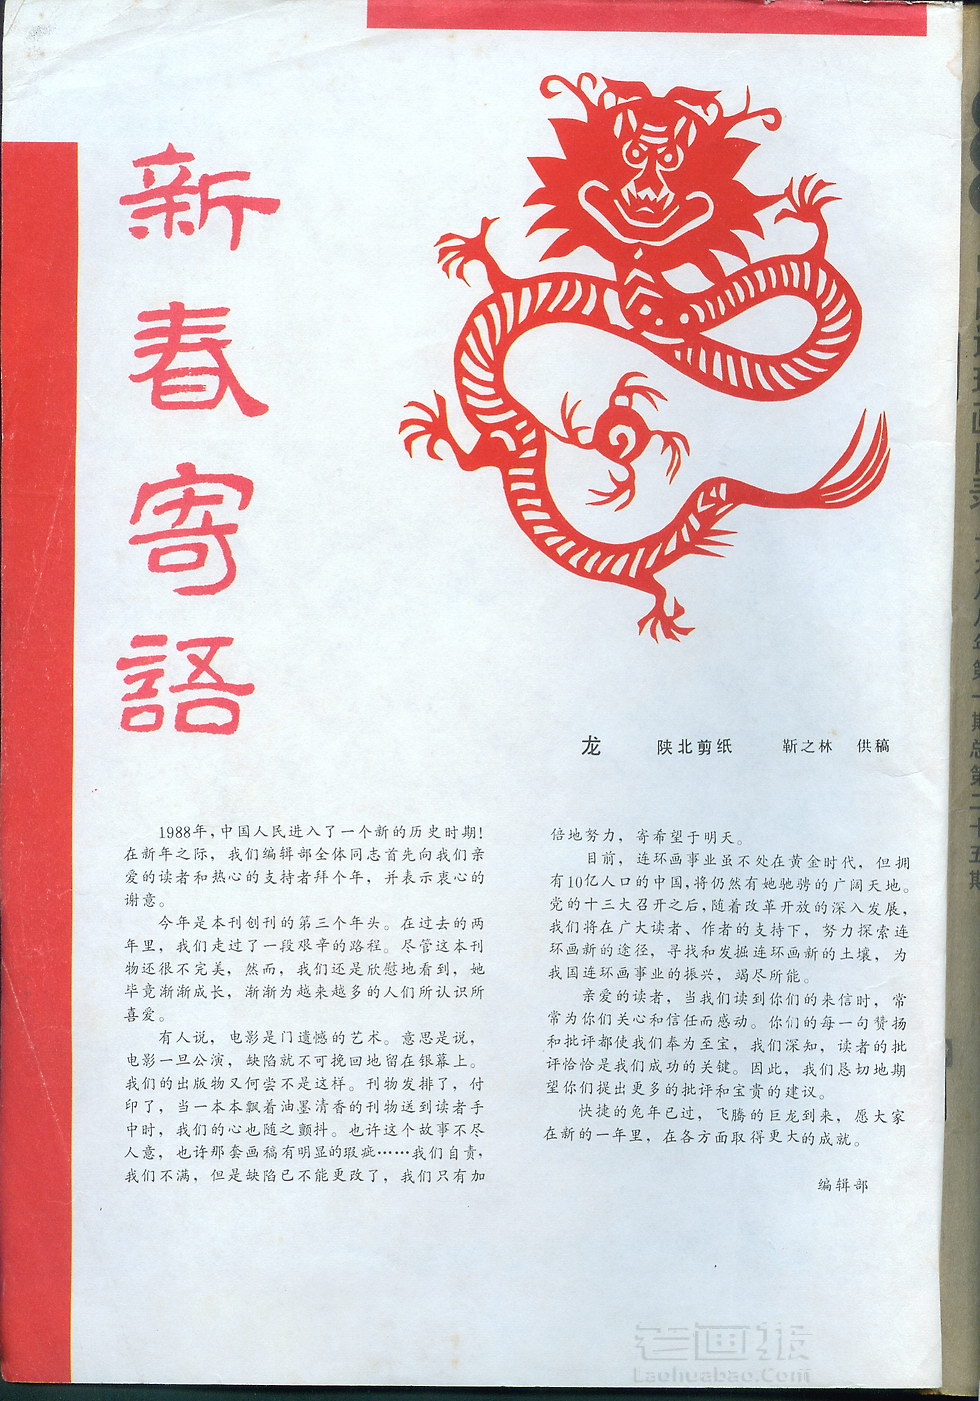 新春寄語
龙 陕北剪纸 靳之林 供稿
1988年,中国人民进入了一个新的历史时期!
在新年之际，我们编辑部全体同志首先向我们亲
爱的读者和热心的支持者拜个年，并表示衷心的
谢意。
今年是本刊创刊的第三个年头。在过去的两
年里，我们走过了一段艰辛的路程。尽管这本刊
物还很不完美，然而，我们还是欣慰地看到，她
毕竟渐渐成长，渐渐为越来越多的人们所认识所
喜爱。
有人说，电影是门遗憾的艺术。意思是说，
电影一旦公演，缺陷就不可挽回地留在银幕上。
我们的出版物又何尝不是这样。刊物发排了，付
印了，当一本本飘着油墨清香的刊物送到读者手
中时，我们的心也随之颤抖。也许这个故事不尽
人意，也许那套画稿有明显的瑕疵……我们自责，
我们不满，但是缺陷已不能更改了，我们只有加
倍地努力，寄希望于明天。
目前，连环画事业虽不处在黄金时代，但拥
有10亿人口的中国,将仍然有她驰骋的广阔天地。
党的十三大召开之后,随着改革开放的深入发展，
我们将在广大读者、作者的支持下，努力探索连
环画新的途径，寻找和发掘连环画新的土壤，为
我国连环画事业的振兴，竭尽所能。
亲爱的读者，当我们读到你们的来信时，常
常为你们关心和信任而感动。你们的每一句赞扬
和批评都使我们奉为至宝，我们深知，读者的批
评恰恰是我们成功的关键。因此，我们恳切地期
望你们提出更多的批评和宝贵的建议。
快捷的兔年已过，飞腾的巨龙到来，愿大家
在新的一年里，在各方面取得更大的成就。
编辑部
老画报
Laohuabao.Com